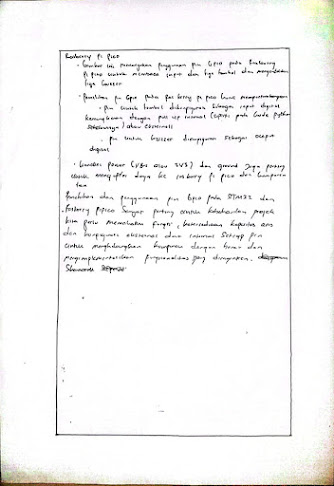 Rasberry Pi Pico
- Gambar ini menunjukan penggunaan pin Gpio pada Rasberry
Pi pico untuk membaca input dari tiga tombol dan mengendalikan
tiga buzzer
- Pemilihan pin Gpio pada Ras berry pi pico harus mempertimbangkan
- pin untuk tombol dikonfigurasi sebagai input digital
kemungkinan dengan pull up internal (seperti pada kode python
sebelumnya) atau eksternal
- pin untuk buzzer dikonfigurasi sebagai output
digital
- koneksi power (VBUS atau SYS) dan ground juga penting
untuk menyuplai daya ke rasberry pi pico dan komponen
lain
Pemilihan dan penggunaan pin Gpio pada STM32 dan
Rasberry pi pico sangat penting untuk keberhasilan proyek
kita perlu memahami fungsi, ketersediaan kapasitas arus
dan konfigurasi eksternal dan internal setiap pin
untuk menghubungkan komponen dengan benar dan
mengimplementasikan fungsionalitas yang diinginkan.